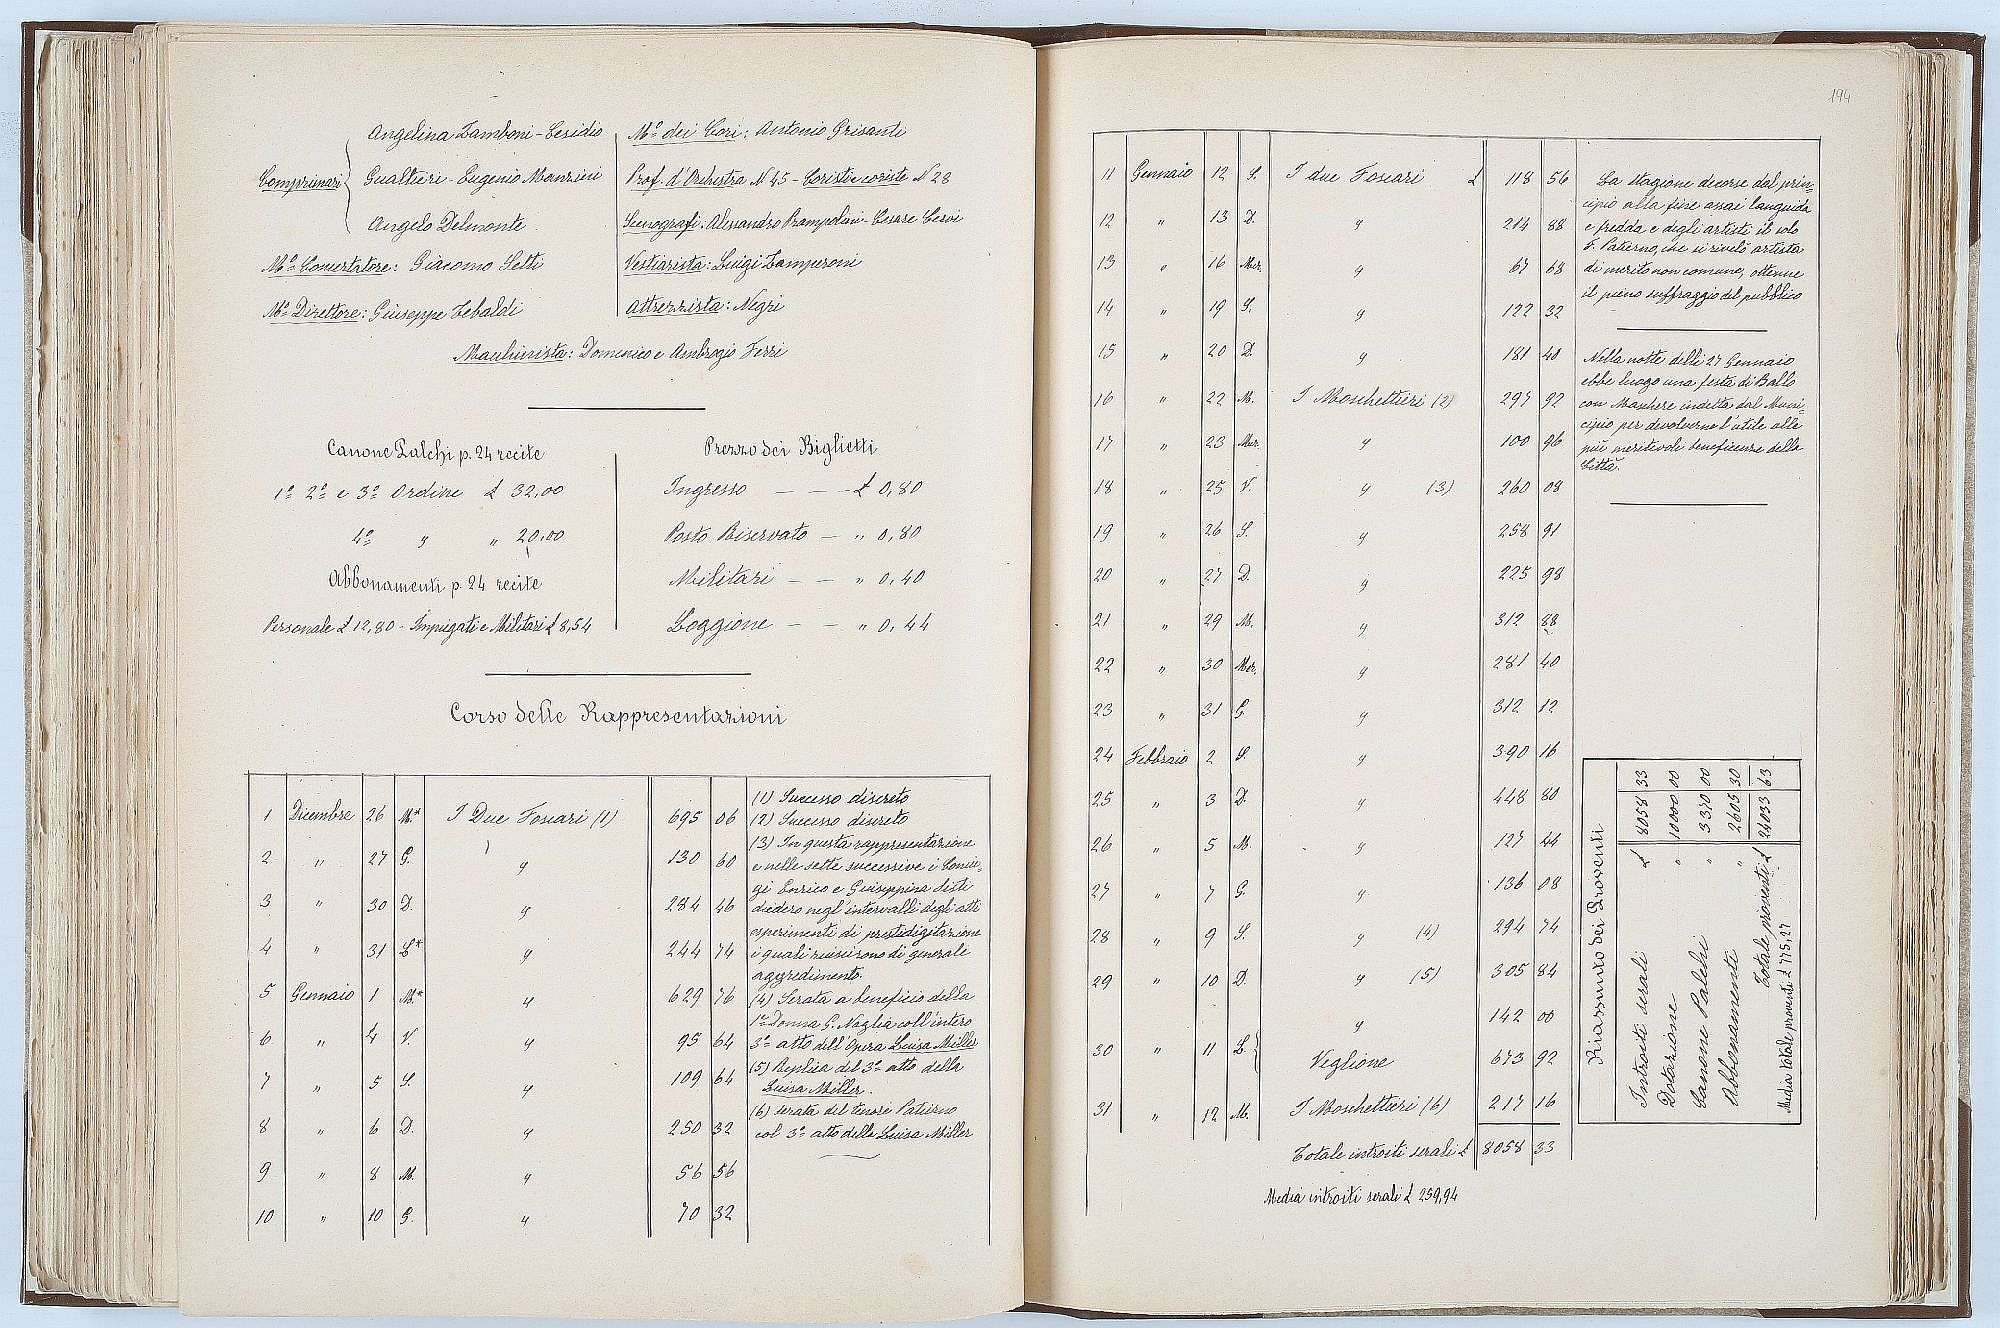 Comprimari
Angelina Zamboni - Cesidio
Gualtieri - Eugenio Manzini
Angelo Delmonte.
Mo. Concertatore: Giacomo Setti
Mo. Direttore: Giuseppe Tebaldi
Mo. dei Cori: Antonio Grisanti
Prof. d'Orchestra N 45 - Coristi e coriste N 28
Scenografi: Alessandro Prampolini - Cesare Cervi
Vestiarista: Luigi Zamperoni
Attrezzista: Negri
Machinista: Domenico e Ambrogio Ferri
Canone Palchi p. 24 recite
1o. 2o. e 3o. Ordine £ 32,00
4o. " " 20,00
Abbonamenti p. 24 recite
Personale £ 12,80 - Impiegati e Militari £ 8,54
Prezzo dei Biglietti
Ingresso — — — £ 0,80
Posto Riservato — " 0,80
Militari — — " 0,40
Loggione — — " 0,44
Corso delle Rappresentazioni
1 Dicembre 26 M.* I Due Foscari (1) 695 06
2 " 27 G. " 130 60
3 " 30 D. " 284 46
4 " 31 L* " 244 74
5 Gennaio 1 M.* " 629 76
6 " 4 V. " 95 64
7 " 5 S. " 109 64
8 " 6 D. " 250 32
9 " 8 M. " 56 56
10 " 10 G. " 70 32
(1) Successo discreto
(2) Successo discreto
(3) In questa rappresentazione
e nelle sette successive i Coniu-
gi Enrico e Giuseppina Sisti
diedero negl'intervalli degli atti
esperimenti di prestidigitazione
i quali riuscirono di generale
aggredimento.
(4) Serata a beneficio della
1a. Donna G. Naglia coll'intero
3o. atto dell'Opera Luisa Miller
(5) Replica del 3o. atto della
Luisa Miller.
(6) serata del tenore Paterno
col 3o. atto della Luisa Miller
194
11 Gennaio 12 S. I due Foscari £ 118 56
12 " 13 D. " 214 88
13 " 16 Mer. " 67 68
14 " 19 S. " 122 32
15 " 20 D. " 181 40
16 " 22 M. I Moschettieri (2) 297 92
17 " 23 Mer. " 100 96
18 " 25 V. " (3) 260 08
19 " 26 S. " 258 91
20 " 27 D. " 225 98
21 " 29 M. " 312 88
22 " 30 Mer. " 281 40
23 " 31 G. " 312 12
24 Febbraio 2 S. " 390 16
25 " 3 D. " 448 80
26 " 5 M. " 127 44
27 " 7 G. " 136 08
28 " 9 S. " (4) 294 74
29 " 10 D. " (5) 305 84
30 " 11 L. " 142 00
Veglione 673 92
31 " 12 M. I Moschettieri (6) 217 16
Totale introiti serali £ 8058 33
Media introiti serali £ 259,94
La stagione decorse dal prin-
cipio alla fine assai languida
e fredda e degli artisti il solo
G. Paterno, che si rivelò artista
di merito non comune, ottenne
il pieno suffraggio del pubblico
Nella notte delli 27 Gennaio
ebbe luogo una festa di Ballo
con Maschere indetta dal Muni-
cipio per devolverne l'utile alle
più meritevoli beneficenze della
Città.
Riassunto dei Proventi
Introiti serali £ 8058 33
Dotazione " 10000 00
Canone Palchi " 3370 00
Abbonamenti " 2605 30
Totale proventi £ 24033 63
Media totale proventi £ 775,27